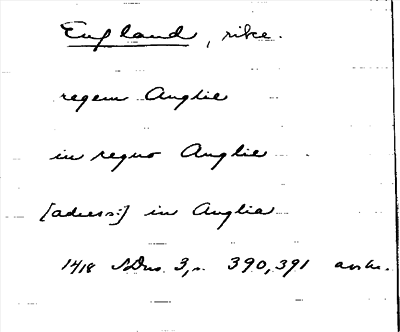 England, rike.
regem Anglie
in regno Anglie
[adress:] in Anglia
1418 SDns. 3, s. 390, 391 avskr.